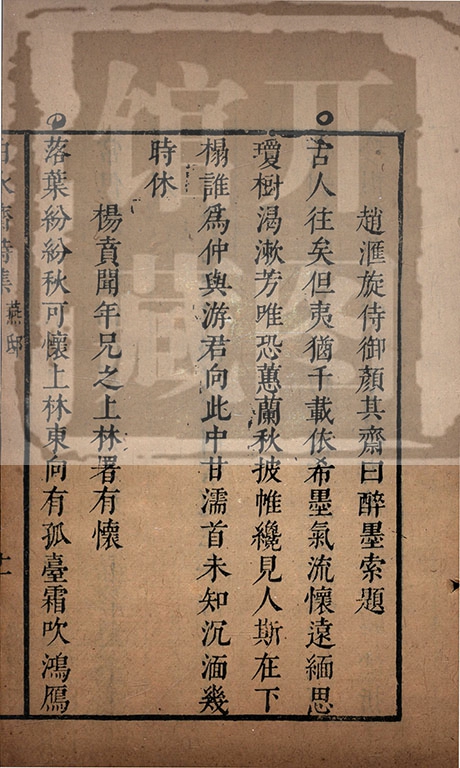 趙滙旋侍御顏其齋曰醉墨索題
古人往矣但夷猶千載依希墨氣流懷遠緬思
瓊樹渴漱芳唯恐蕙蘭秋披帷纔見人斯在下
榻誰爲仲與游君向此中甘濡首未知沉湎幾
時休
楊賁聞年兄之上林署有懷
落葉紛紛秋可懷上林東向有孤臺霜吹鴻鴈
白水齋詩集
燕邸
十一
开图
馆藏